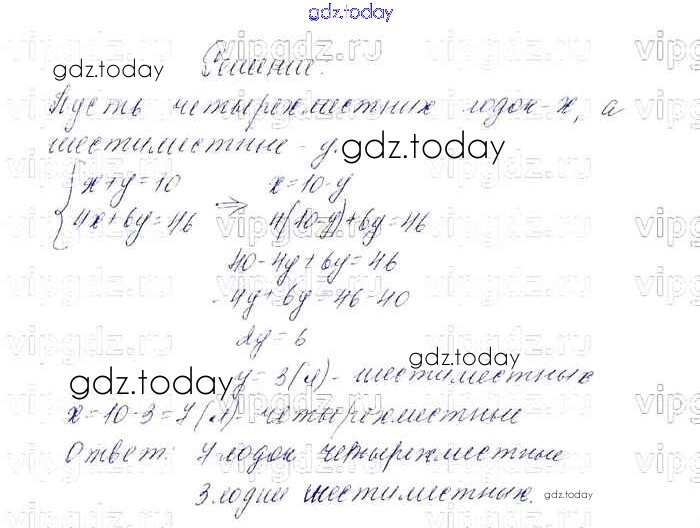 gdz.today
Решение.
gdz.today
Пусть четырехместных лодок - х, а
шестиместные - у.
gdz.today
x+y=10 => x=10-y
4x+6y=46 4(10-y)+6y=46
40-4y+6y=46
-4y+6y=46-40
2y=6
gdz.today
y=3(л) - шестиместных
gdz.today
x=10-3=7(л) - четырехместные
Ответ: 7 лодок четырехместные
3 лодки шестиместных.
gdz.today
vipgdz.ru